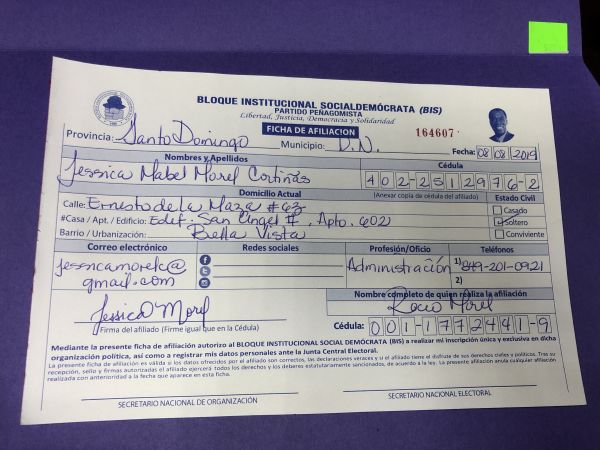 BLOQUE INSTITUCIONAL SOCIALDEMÓCRATA (BIS)
PARTIDO PEÑAGOMISTA
Libertad, Justicia, Democracia y Solidaridad
FICHA DE AFILIACION
164607
Provincia: Santo Domingo Municipio: D.N. Fecha: 08 08 2019
Nombres y Apellidos Cédula
Jessica Mabel Morel Cortiñas 402-2512976-2
Domicilio Actual (Anexar copia de cédula del afiliado) Estado Civil
Calle: Ernesto de la Maza #63 Casado
#Casa / Apt. / Edificio: Edif. San Angel I, Apto. 602 Soltero
Barrio / Urbanización: Bella Vista Conviviente
Correo electrónico Redes sociales Profesión/Oficio Teléfonos
jessricamorelc@ Administración 1) 849-201-0921
gmail.com 2)
Nombre completo de quien realiza la afiliación
Jessica Morel Rocio Morel
Firma del afiliado (Firme igual que en la Cédula) Cédula: 001-1772441-9
Mediante la presente ficha de afiliación autorizo al BLOQUE INSTITUCIONAL SOCIAL DEMÓCRATA (BIS) a realizar mi inscripción única y exclusiva en dicha
organización política, así como a registrar mis datos personales ante la Junta Central Electoral.
La presente ficha de afiliación es válida si los datos ofrecidos por el afiliado son correctos, las declaraciones veraces y si el afiliado tiene el disfrute de sus derechos civiles y políticos. Tras su
recepción, sello y firmas autorizadas el afiliado ejercerá todos los derechos y los deberes estatutariamente sancionados, de acuerdo a la ley. La presente afiliación anula cualquier afiliación
realizada con anterioridad a la fecha que aparece en esta ficha.
SECRETARIO NACIONAL DE ORGANIZACIÓN SECRETARIO NACIONAL ELECTORAL